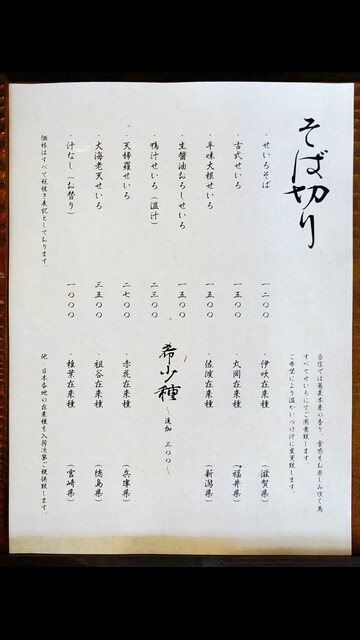 そば切り
当店では蕎麦本来の香り、食感をお楽しみ頂く為
すべてせいろにてご用意致します。
ご希望により温かいつけ汁に変更致します。
・せいろそば 一二〇〇
・古式せいろ 一五〇〇
・辛味大根せいろ 一五〇〇
・生醤油おろしせいろ 一五〇〇
・鴨汁せいろ(温汁) 二三〇〇
・天婦羅せいろ 二七〇〇
・大海老天せいろ 三五〇〇
・汁なし(お替り) 一〇〇〇
価格はすべて税抜き表記としております。
希少種 ~追加 三〇〇~
・伊吹在来種 (滋賀県)
・丸岡在来種 (福井県)
・佐渡在来種 (新潟県)
・赤花在来種 (兵庫県)
・祖谷在来種 (徳島県)
・椎葉在来種 (宮崎県)
他、日本各地の在来種を入荷次第ご提供致します。